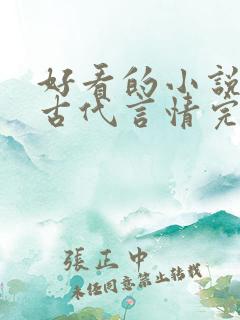 好看的小说
古代言情完
張正中
未经同意禁止转载